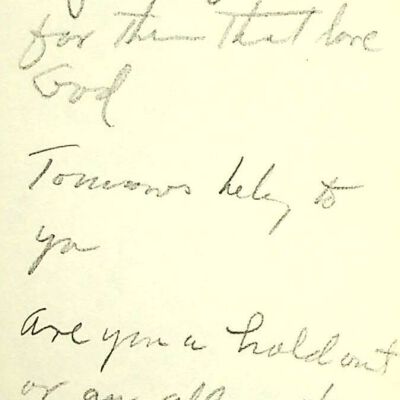 for the that love
God
Tomorrows to
yo
are you a hold out
or